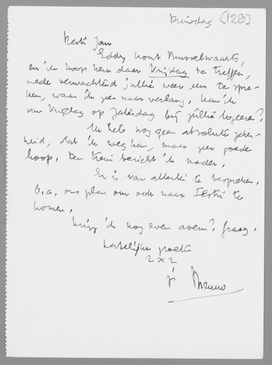 Dinsdag [128]
Beste Jan
Eddy komt Brusselwaarts,
en ik hoop hem daar Vrijdag te treffen,
mede verwachtend jullie weer eens te spre-
ken, waar ik zeer naar verlang. Kan ik
van Vrijdag op Zaterdag bij jullie logeren?
Er is nog geen absolute zeker-
heid, dat ik weg kan, maar zeer goede
hoop. Den trein bericht ik nader.
Er is van allerlei te bespreken,
o.a. ons plan om ook naar te
komen.
Krijg ik nog even antw.? Graag.
Hartelijke groeten
2 x 2
je Menno